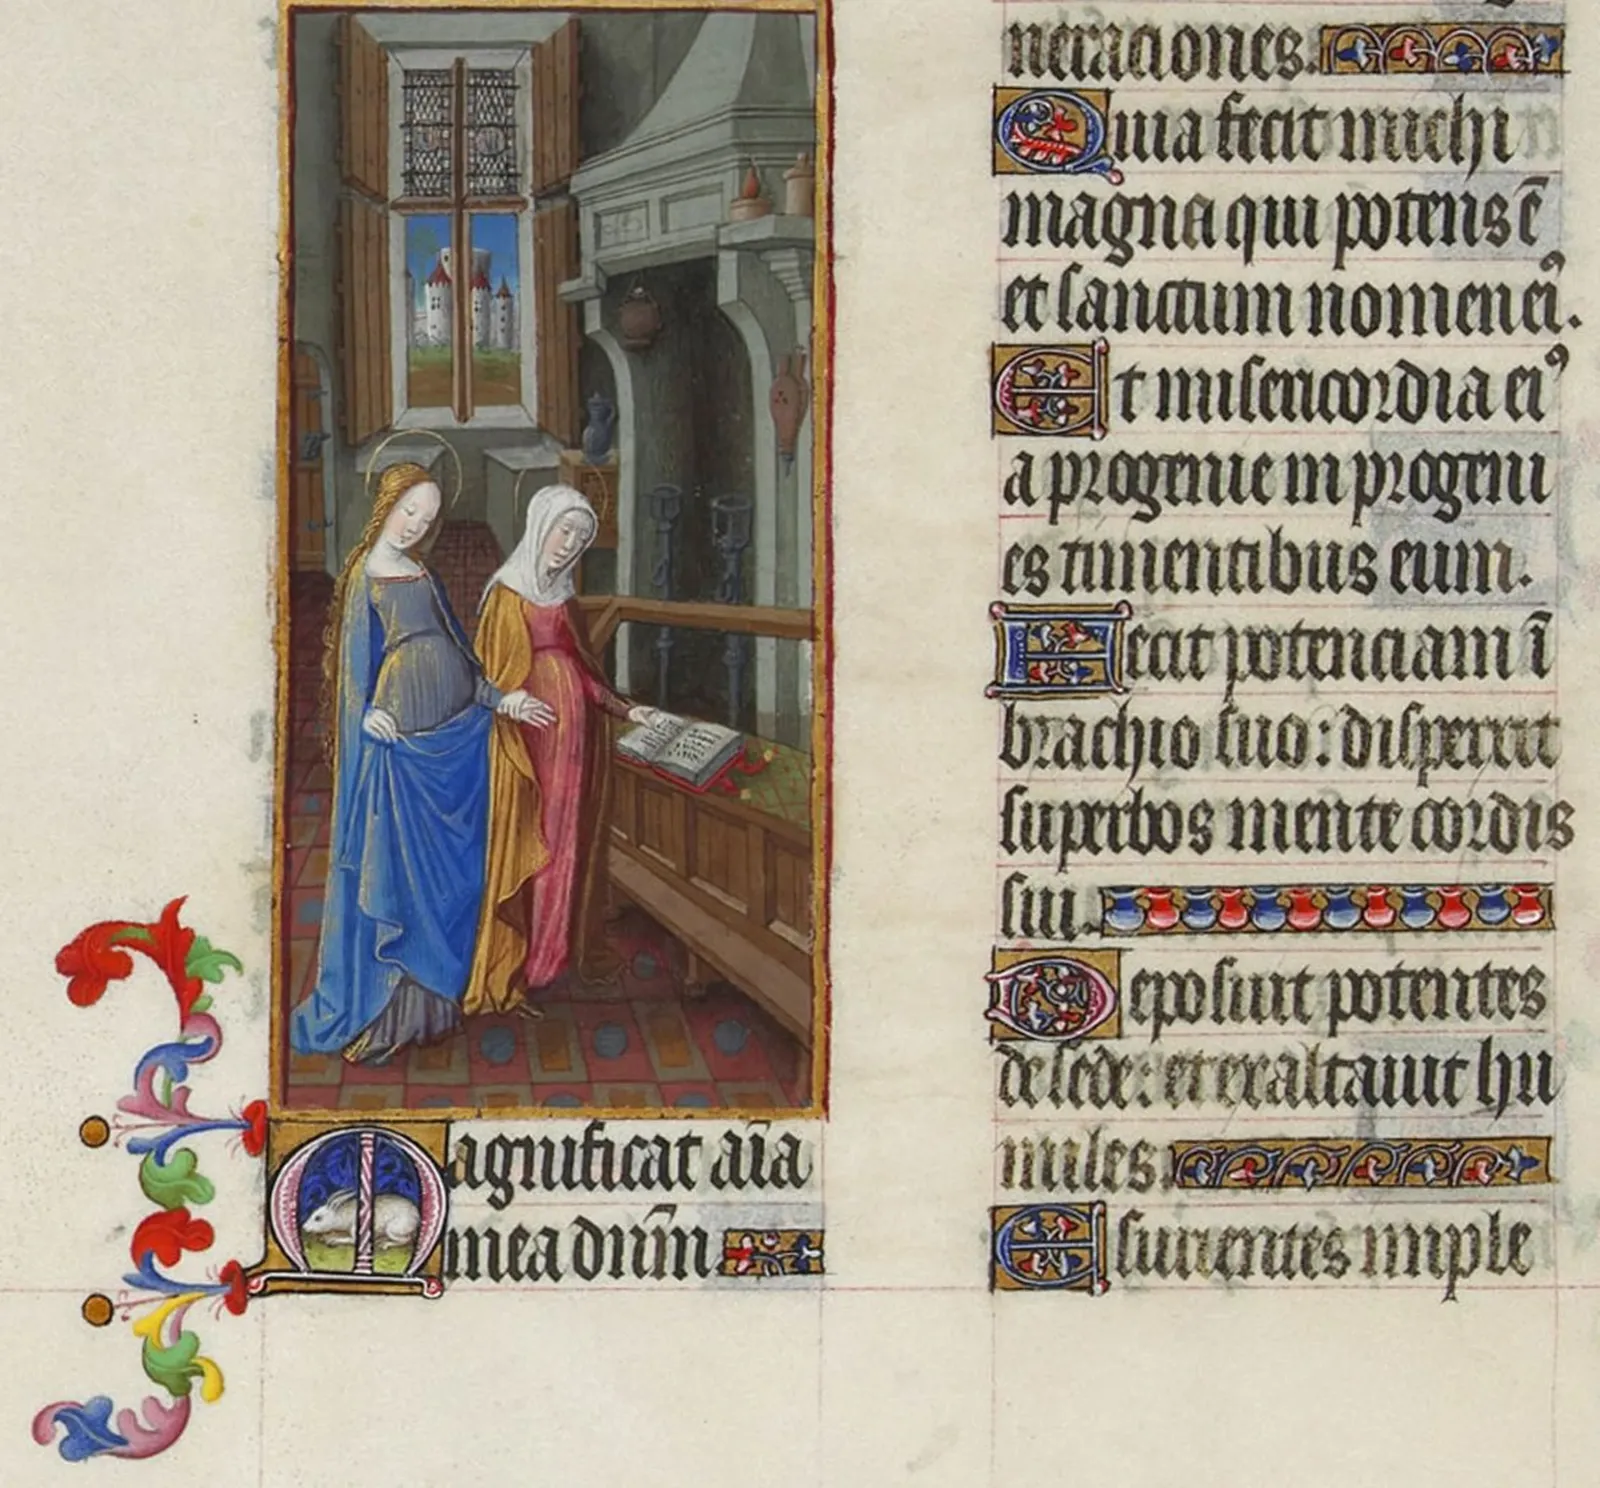 Magnificat aīa
mea dnūm
neraciones.
Quia fecit michi
magna qui potens ē
et sanctum nomen eiꝰ.
Et misericordia eiꝰ
a progenie in progeni
es timentibus eum.
Fecit potenciam ī
brachio suo: dispersit
superbos mente cordis
sui.
Deposuit potentes
de sede: et exaltauit hu
miles.
Esurientes imple